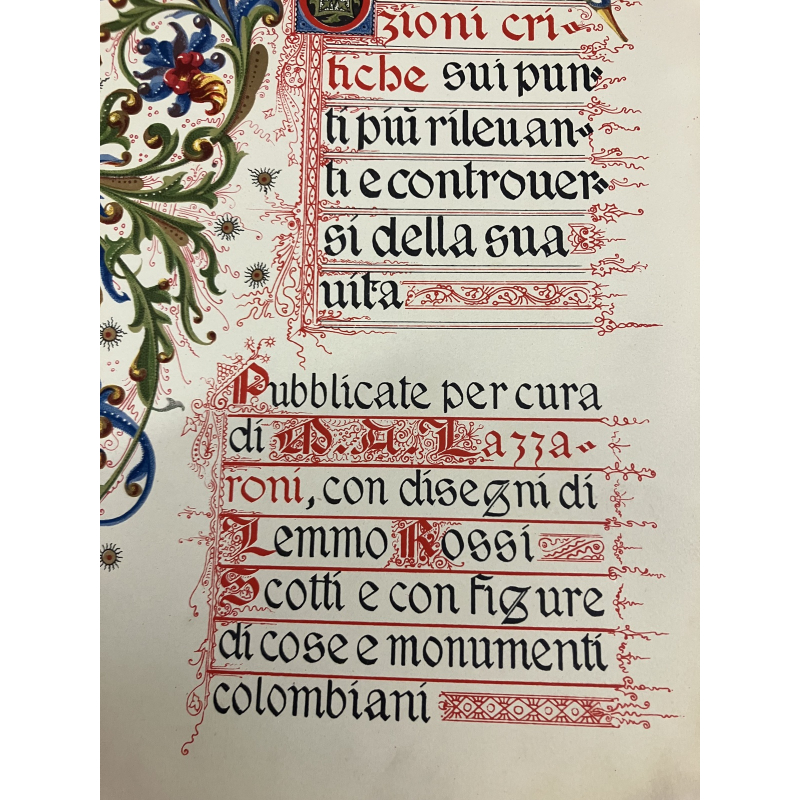 Ozioni cri-
tiche sui pun-
ti più rileuan-
ti e controuer-
si della sua
uita
Pubblicate per cura
di M. A. Lazza-
roni, con disegni di
Lemmo Rossi
Scotti e con figure
di cose e monumenti
colombiani